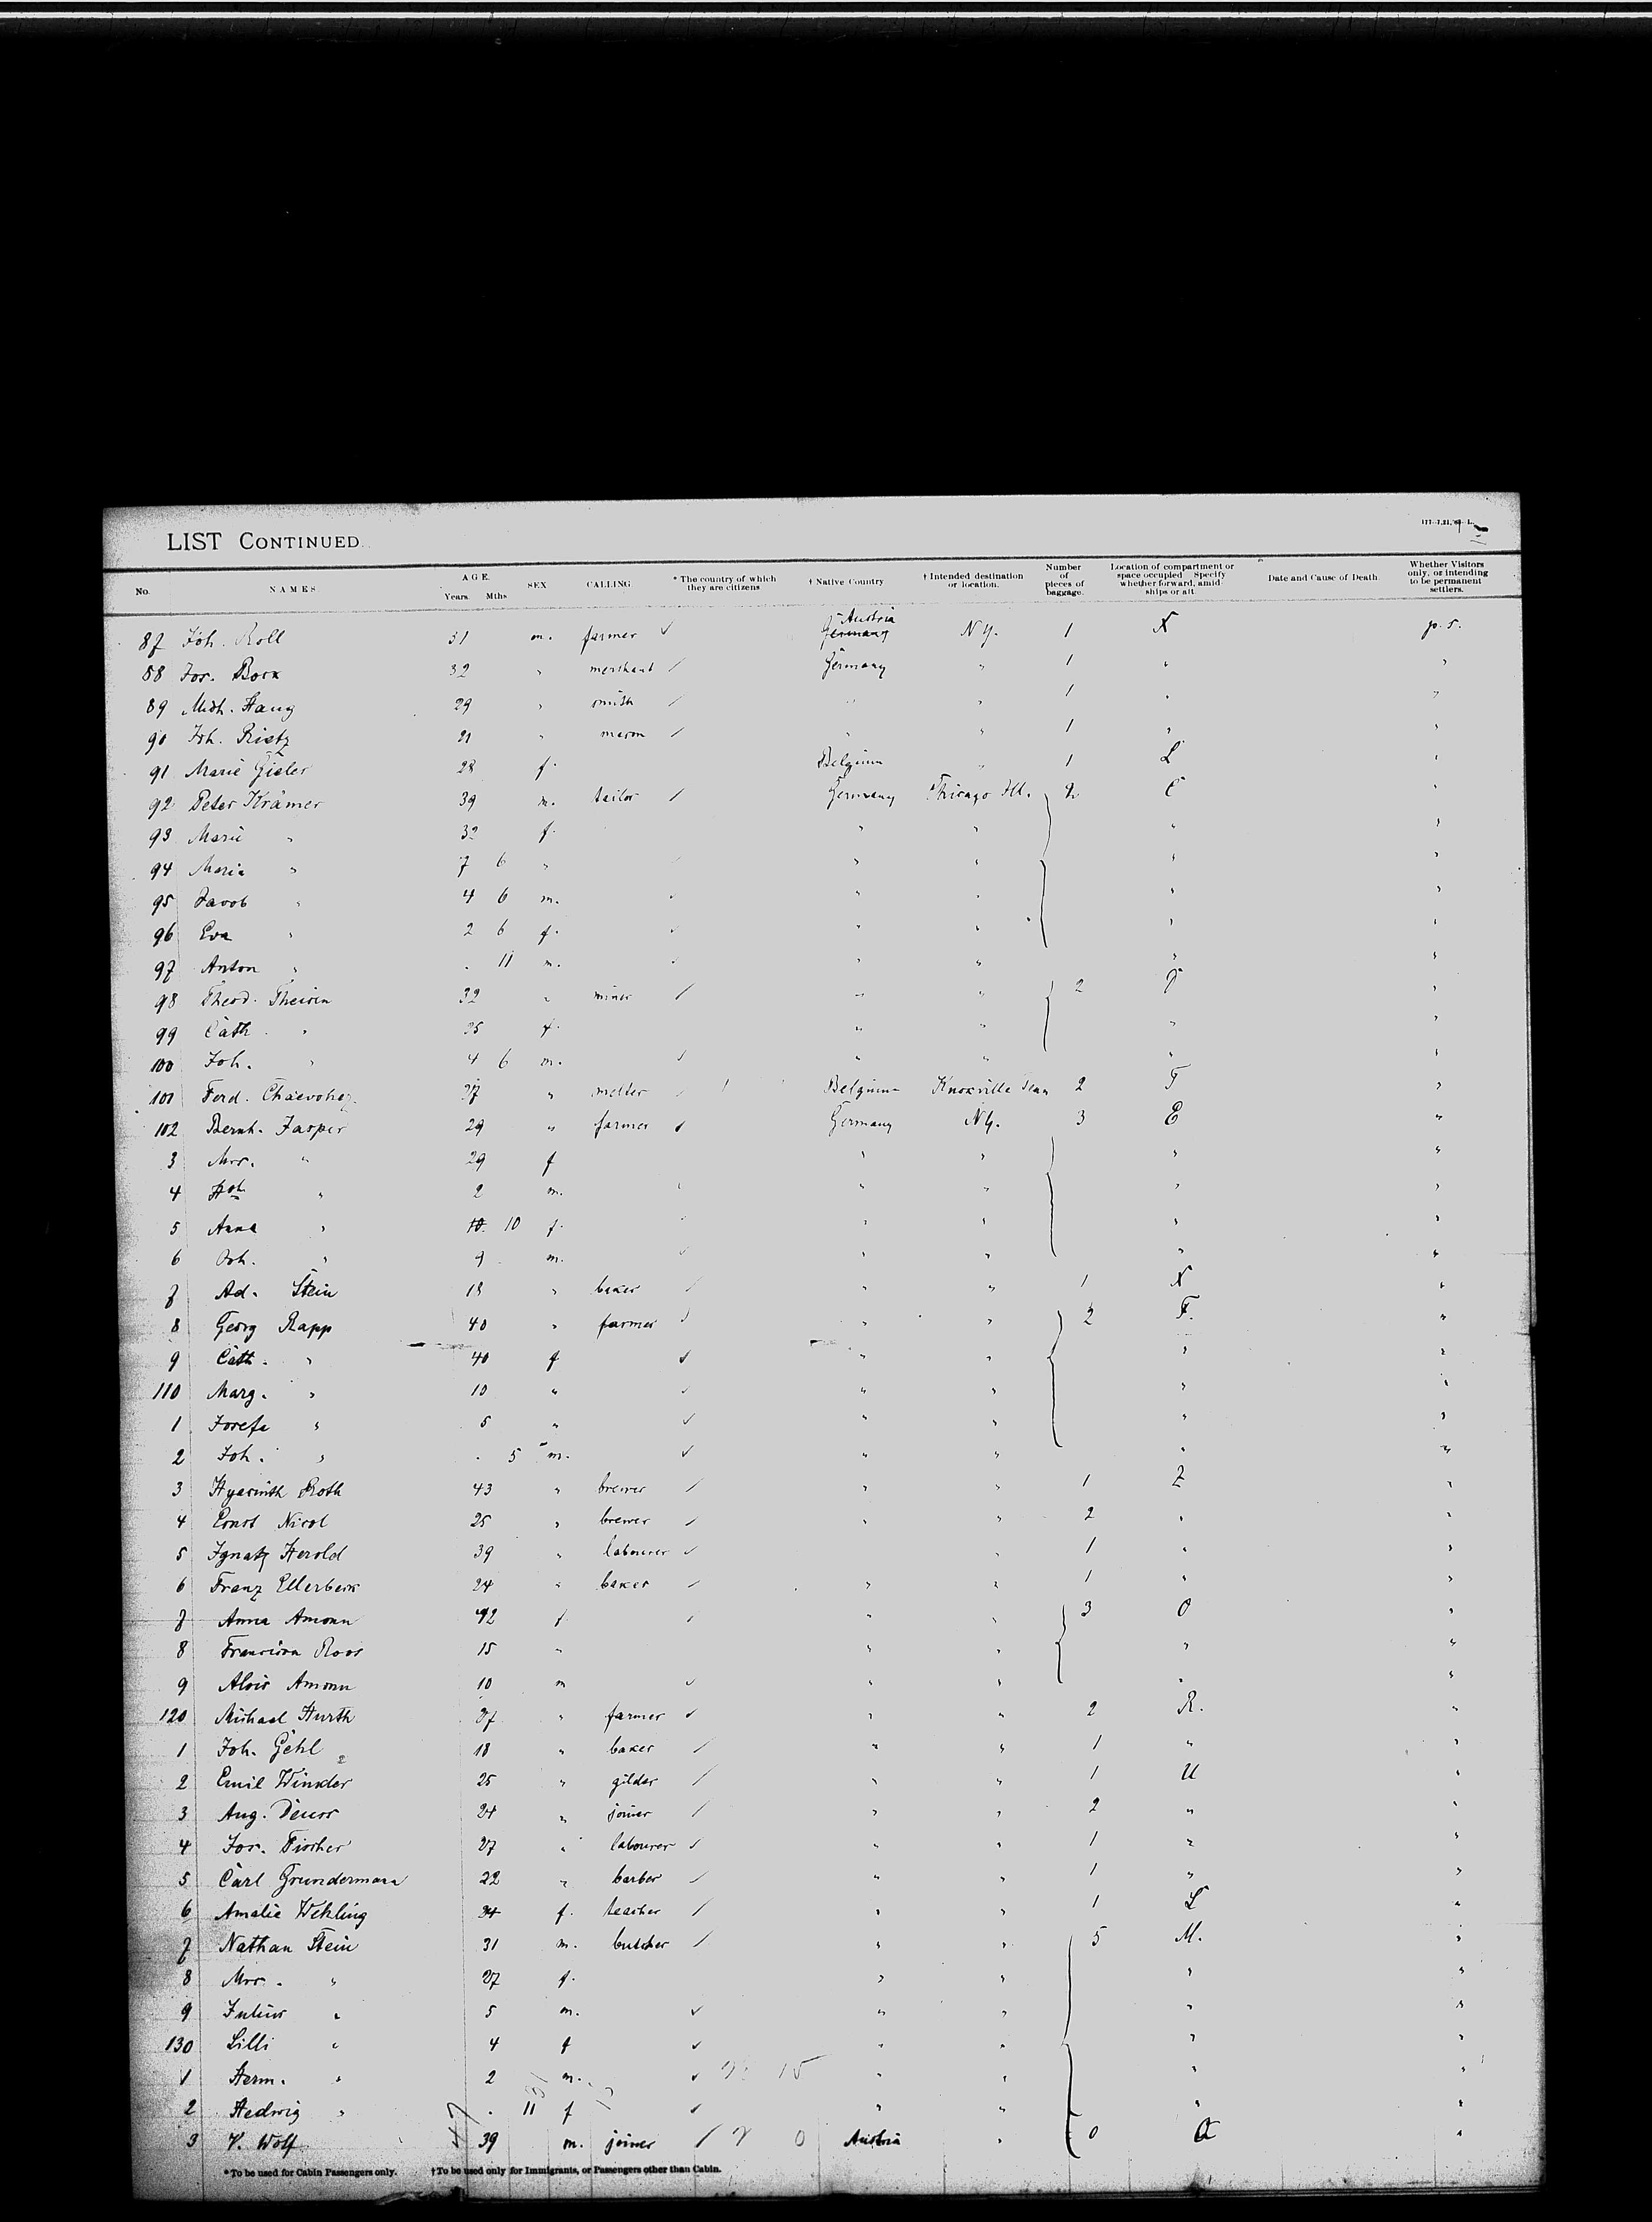 LIST CONTINUED.
No. NAMES AGE. Years. Mths SEX CALLING. * The country of which they are citizens † Native Country † Intended destination or location. Number of pieces of baggage. Location of compartment or space occupied Specify whether forward, amidships or aft Date and Cause of Death. Whether Visitors only, or intending to be permanent settlers.
87 Joh. Roll 31 m. farmer Austria Germany N.Y. 1 X p.s.
88 Jos. Bock 32 " merchant Germany " 1 " "
89 Mich. Haug 29 " smith " " 1 " "
90 Joh. Rietz 21 " mason " " 1 " "
91 Marie Gisler 28 f. Belgium " 1 L "
92 Peter Krämer 39 m. tailor Germany Chicago Ill. 2 C "
93 Marie " 32 f. " " " "
94 Maria " 7 6 " " " " "
95 Jacob " 4 6 m. " " " "
96 Eva " 2 6 f. " " " "
97 Anton " . 11 m. " " " "
98 Theod. Theisen 32 " miner " " 2 "
99 Cath. " 25 f. " " " "
100 Joh. " 4 6 m. " " " "
101 Ferd. 37 " melter Belgium Knoxville Tenn 2 T "
102 Bernh. Jasper 29 " farmer Germany N.Y. 3 E "
3 Mrs. " 29 f " " " "
4 " 2 m. " " " "
5 Anna " 10 f. " " " "
6 Joh. " 9 m. " " " "
7 Ad. Stein 18 " baker " " 1 X "
8 Georg Rapp 40 " farmer " " 2 F. "
9 Cath. " 40 f " " " "
110 Marg. " 10 " " " " "
1 Josefa " 5 " " " " "
2 Joh. " . 5 m. " " " "
3 Hyacinth Roth 43 " brewer " " 1 Z "
4 Ernst Nicol 25 " brewer " " 2 " "
5 Ignatz Herold 39 " labourer " 1 " "
6 Franz Ellerbeck 24 " baker " " 1 " "
7 Anna Amonn 42 f. " " 3 O "
8 Francisca Roos 15 " " " " "
9 Alois Amonn 10 m " " " "
120 Michael Hurth 27 " farmer " " 2 R. "
1 Joh. Gehl 18 " baker " " 1 " "
2 Emil Winkler 25 " gilder " " 1 U "
3 Aug. Deuss 24 " joiner " " 2 " "
4 Jos. Fischer 27 " labourer " " 1 " "
5 Carl Grundermann 22 " barber " " 1 " "
6 Amalie Wehling 34 f. teacher " " 1 L "
7 Nathan Stein 31 m. butcher " " 5 M. "
8 Mrs. " 27 f. " " " "
9 Julius " 5 m. " " " "
130 Lilli " 4 f " " " "
1 Herm. " 2 m. " " " "
2 Hedwig " . 11 f " " " "
3 V. Wolf 39 m. joiner Austria " 0 Q "
* To be used for Cabin Passengers only. † To be used only for Immigrants, or Passengers other than Cabin.